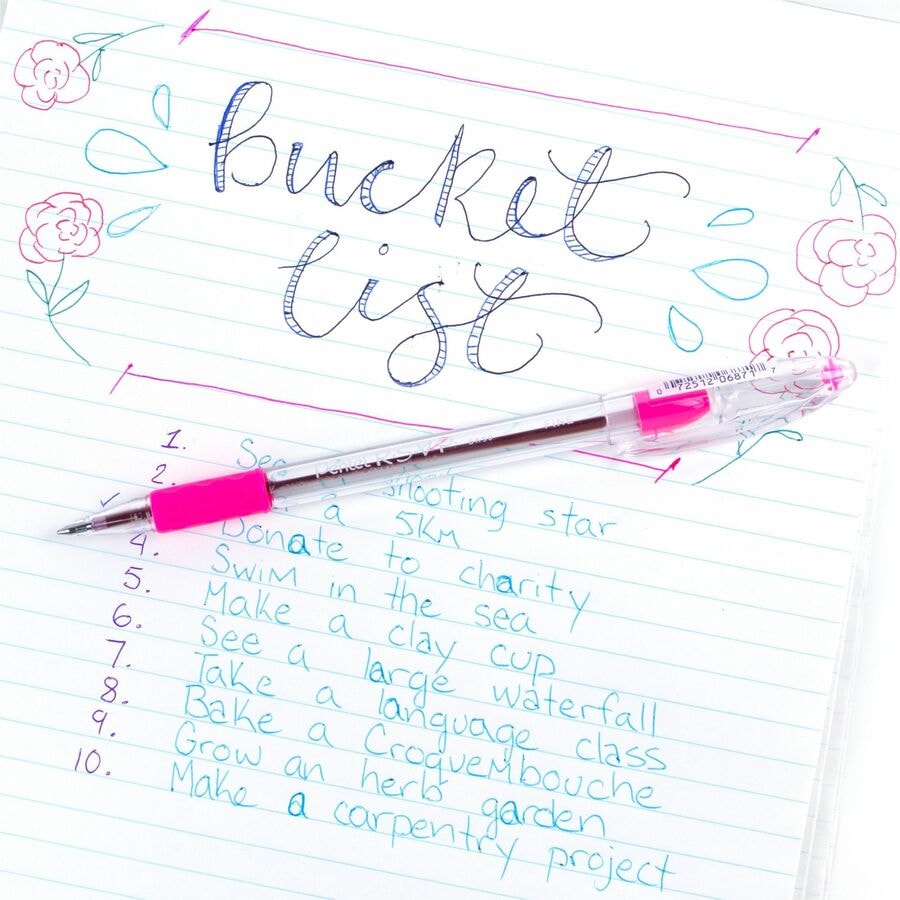 bucket
list
1. See shooting star
2. a 5KM
Donate to charity
4. Swim in the sea
5. Make a clay cup
6. See a large waterfall
7. Take a language class
8. Bake a Croquembouche
9. Grow an herb garden
10. Make a carpentry project
Pentel R.S.V.P. FINE
0 72512 06871 7